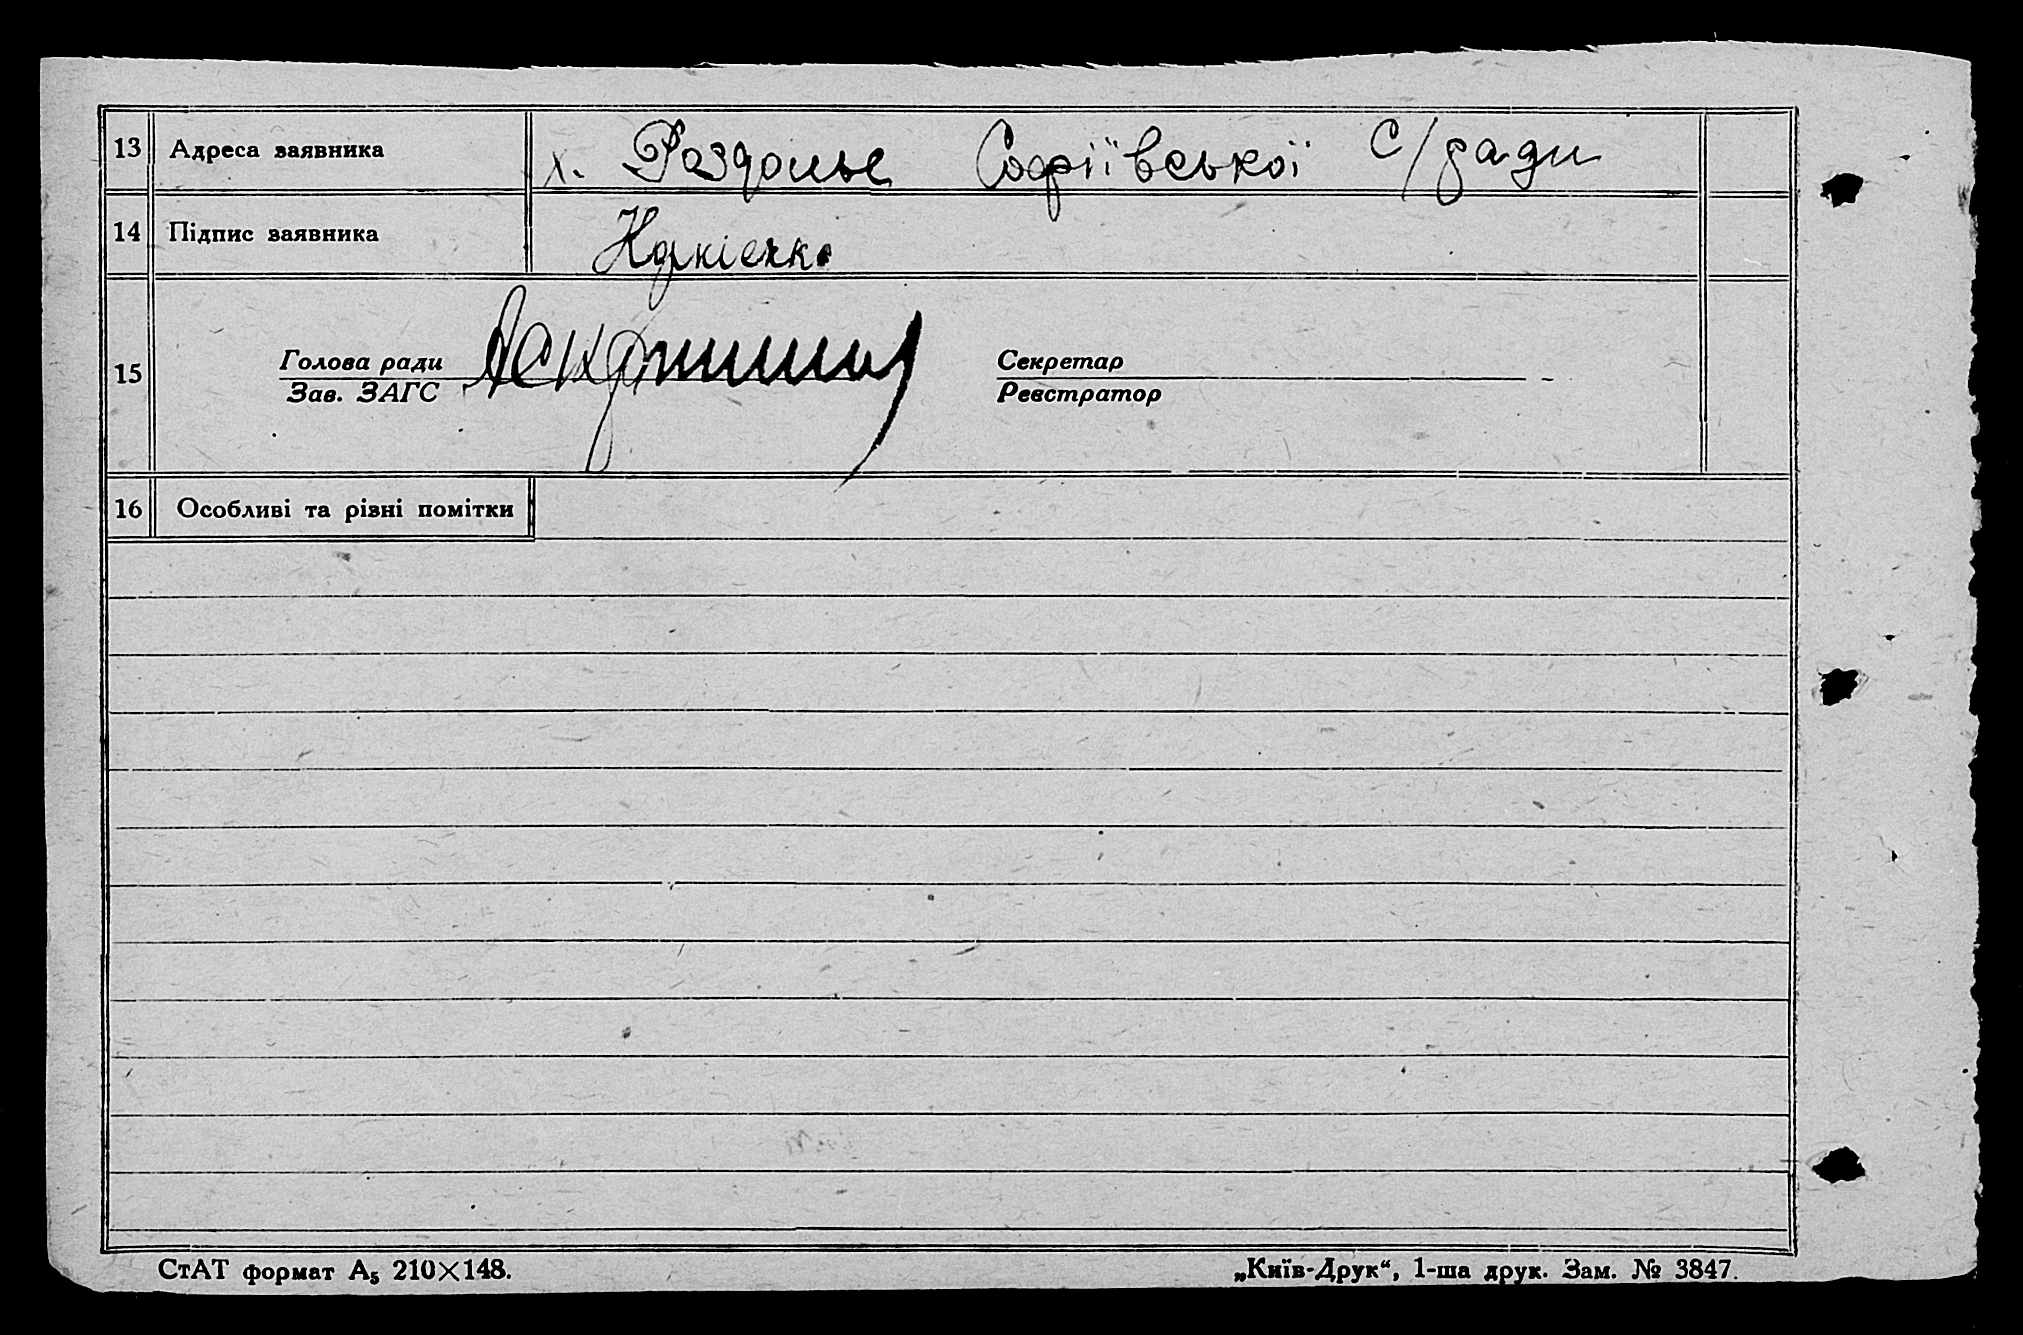 13 Адреса заявника х. Раздолье Софіївської с/ради
14 Підпис заявника
15 Голова ради Секретар
Зав. ЗАГС Реєстратор
16 Особливі та різні помітки
СтАТ формат А₅ 210×148. „Київ-Друк“, 1-ша друк. Зам. № 3847.